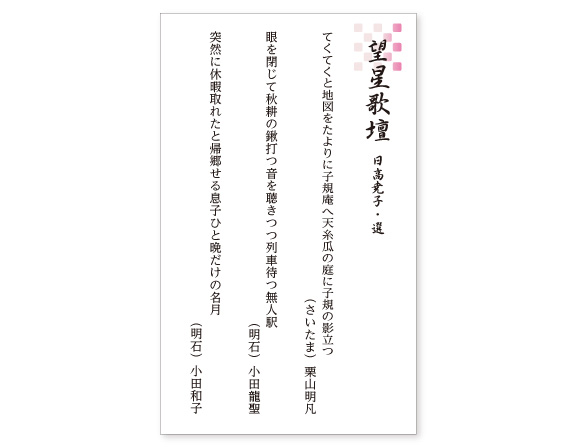 望星歌壇 日高堯子・選
てくてくと地図をたよりに子規庵へ天糸瓜の庭に子規の影立つ
（さいたま）栗山明凡
眼を閉じて秋耕の鍬打つ音を聴きつつ列車待つ無人駅
（明石）小田龍聖
突然に休暇取れたと帰郷せる息子ひと晩だけの名月
（明石）小田和子